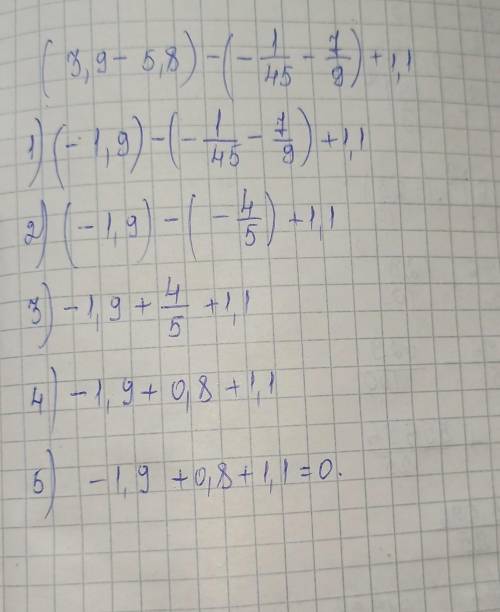 (3,9 - 5,8) - (- 1/45 - 7/9) + 1,1
1) (- 1,9) - (- 1/45 - 7/9) + 1,1
2) (- 1,9) - (- 4/5) + 1,1
3) - 1,9 + 4/5 + 1,1
4) - 1,9 + 0,8 + 1,1
5) - 1,9 + 0,8 + 1,1 = 0.